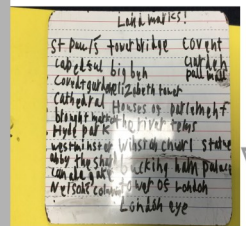 Landmarks!
st paul's tower bridge covent
garden
big ben pall mall
Covent garden elizabeth tower
Cathedral Houses of parlement
Hyde park the river tems
westminster Winston churl statue
abby the shard bucking ham palace
Nelson's tower of London
London eye